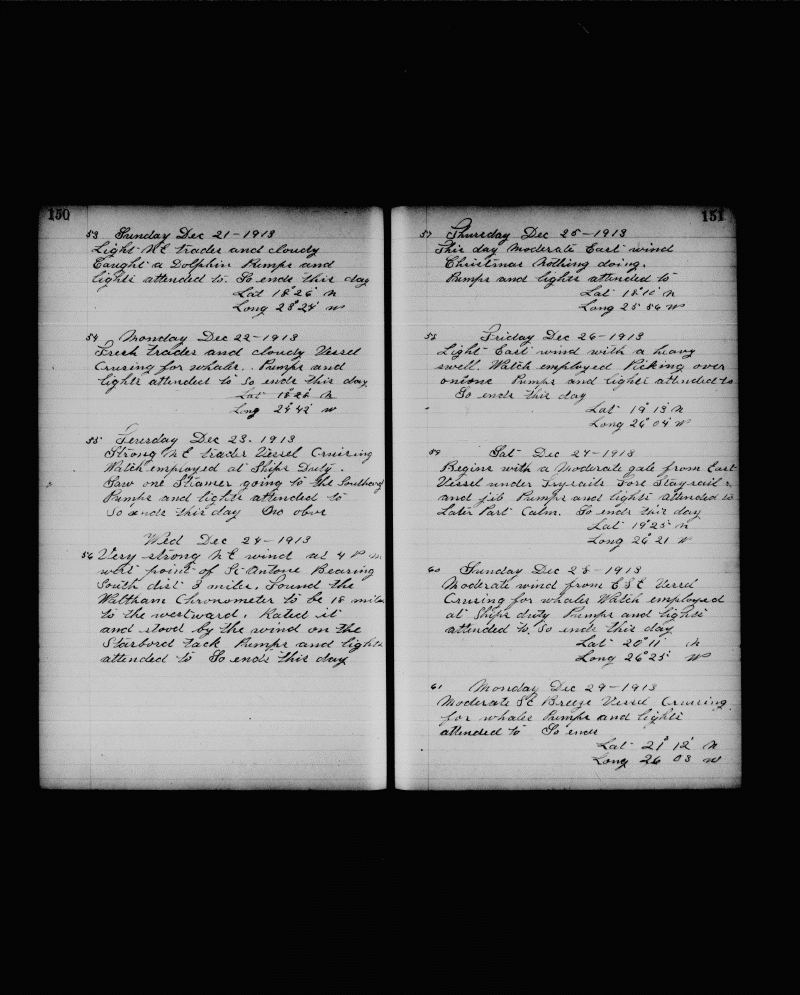 150
53 Sunday Dec 21-1913
Light NE trades and cloudy
Caught a Dolphin Pumps and
lights attended to. So ends this day
Lat 18° 26' N
Long 23° 24' W
54 Monday Dec 22-1913
Fresh trades and cloudy Vessel
Crusing for whales. Pumps and
lights attended to So ends this day
Lat 18° 26' N
Long 24° 42' W
55 Teuesday Dec 23. 1913
Strong NE trades Vessel Cruising
Watch employed at Ships Duty.
Saw one Steamer going to the Southard
Pumps and lights attended to
So ends this day No obs
Wed Dec 24-1913
56 Very strong NE wind at 4 P m
west point of St Antone Bearing
South dist 3 miles, Found the
Waltham Chronometer to be 18 miles
to the westward. Rated it
and stood by the wind on the
Starbord tack Pumps and lights
attended to So ends this day
151
57 Thursday Dec 25-1913
This day Moderate East wind
Christmas Nothing doing.
Pumps and lights attended to
Lat 18° 10' N
Long 25 56 W
58 Friday Dec 26-1913
Light East wind with a heavy
swell. Watch employed Picking over
onions Pumps and lights attended to
So ends this day
Lat 19° 13' N
Long 26° 04' W
59 Sat Dec 27-1913
Begins with a Moderate gale from East
Vessel under Trysails Fore Staysail &
and jib Pumps and lights attended to
Later Part Calm. So ends this day
Lat 19° 25' N
Long 26° 21 W
60 Sunday Dec 28-1913
Moderate wind from ESE Vessel
Crusing for whales Watch employed
at Ships duty Pumps and lights
attended to, So ends this day
Lat 20° 11' N
Long 26° 25' W
61 Monday Dec 29-1913
Moderate SE Breeze Vessel Crusing
for whales Pumps and lights
attended to So ends
Lat 21° 12' N
Long 26 03 W